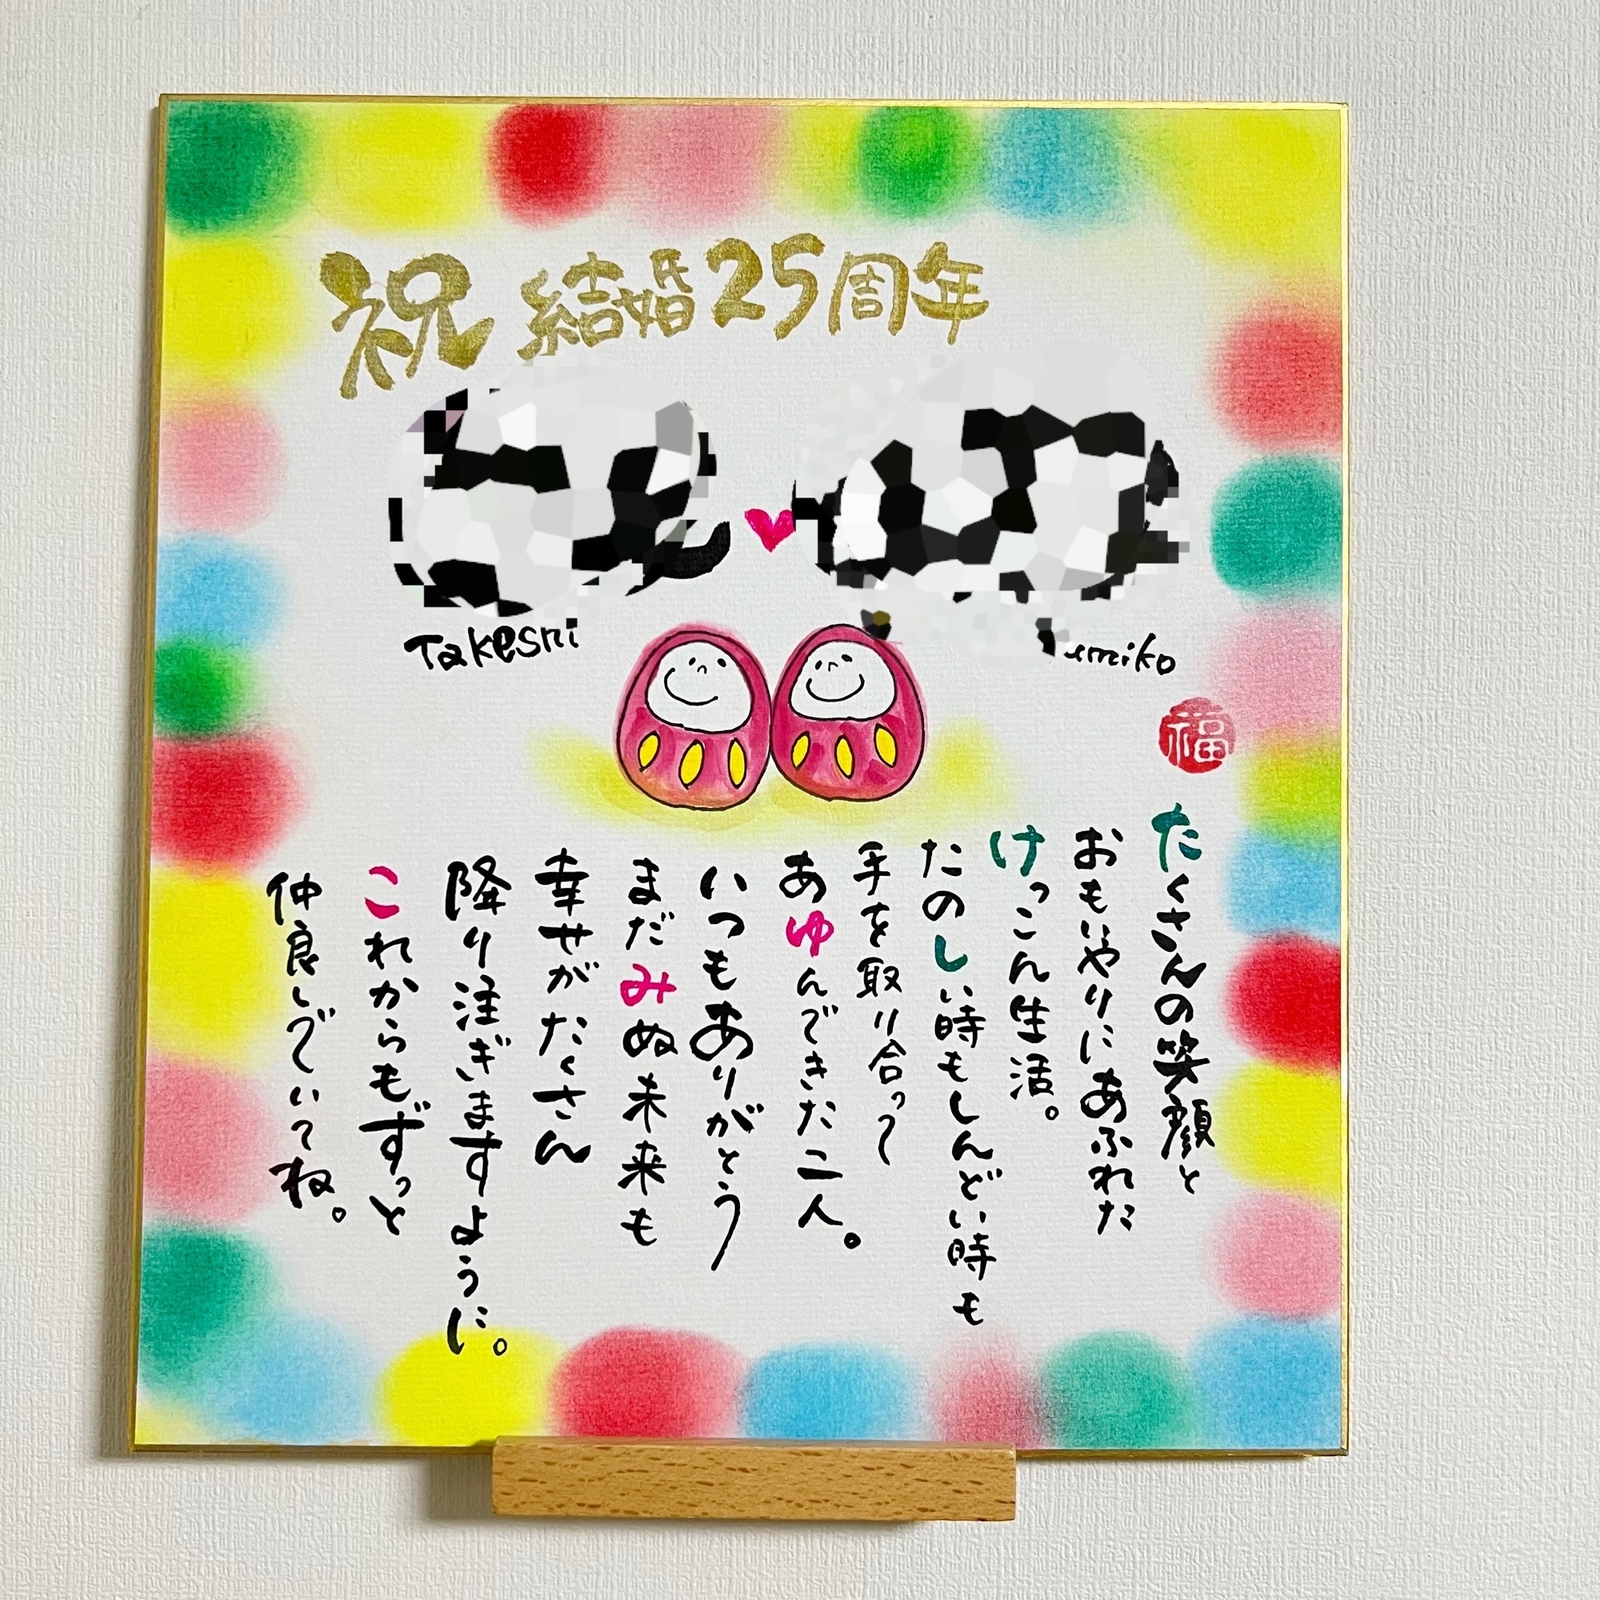 祝 結婚25周年
Takeshi
umiko
福
たくさんの笑顔と
おもいやりにあふれた
けっこん生活。
たのしい時もしんどい時も
手を取り合って
あゆんできた二人。
いつもありがとう
まだみぬ未来も
幸せがたくさん
降り注ぎますように。
これからもずっと
仲良しでいてね。